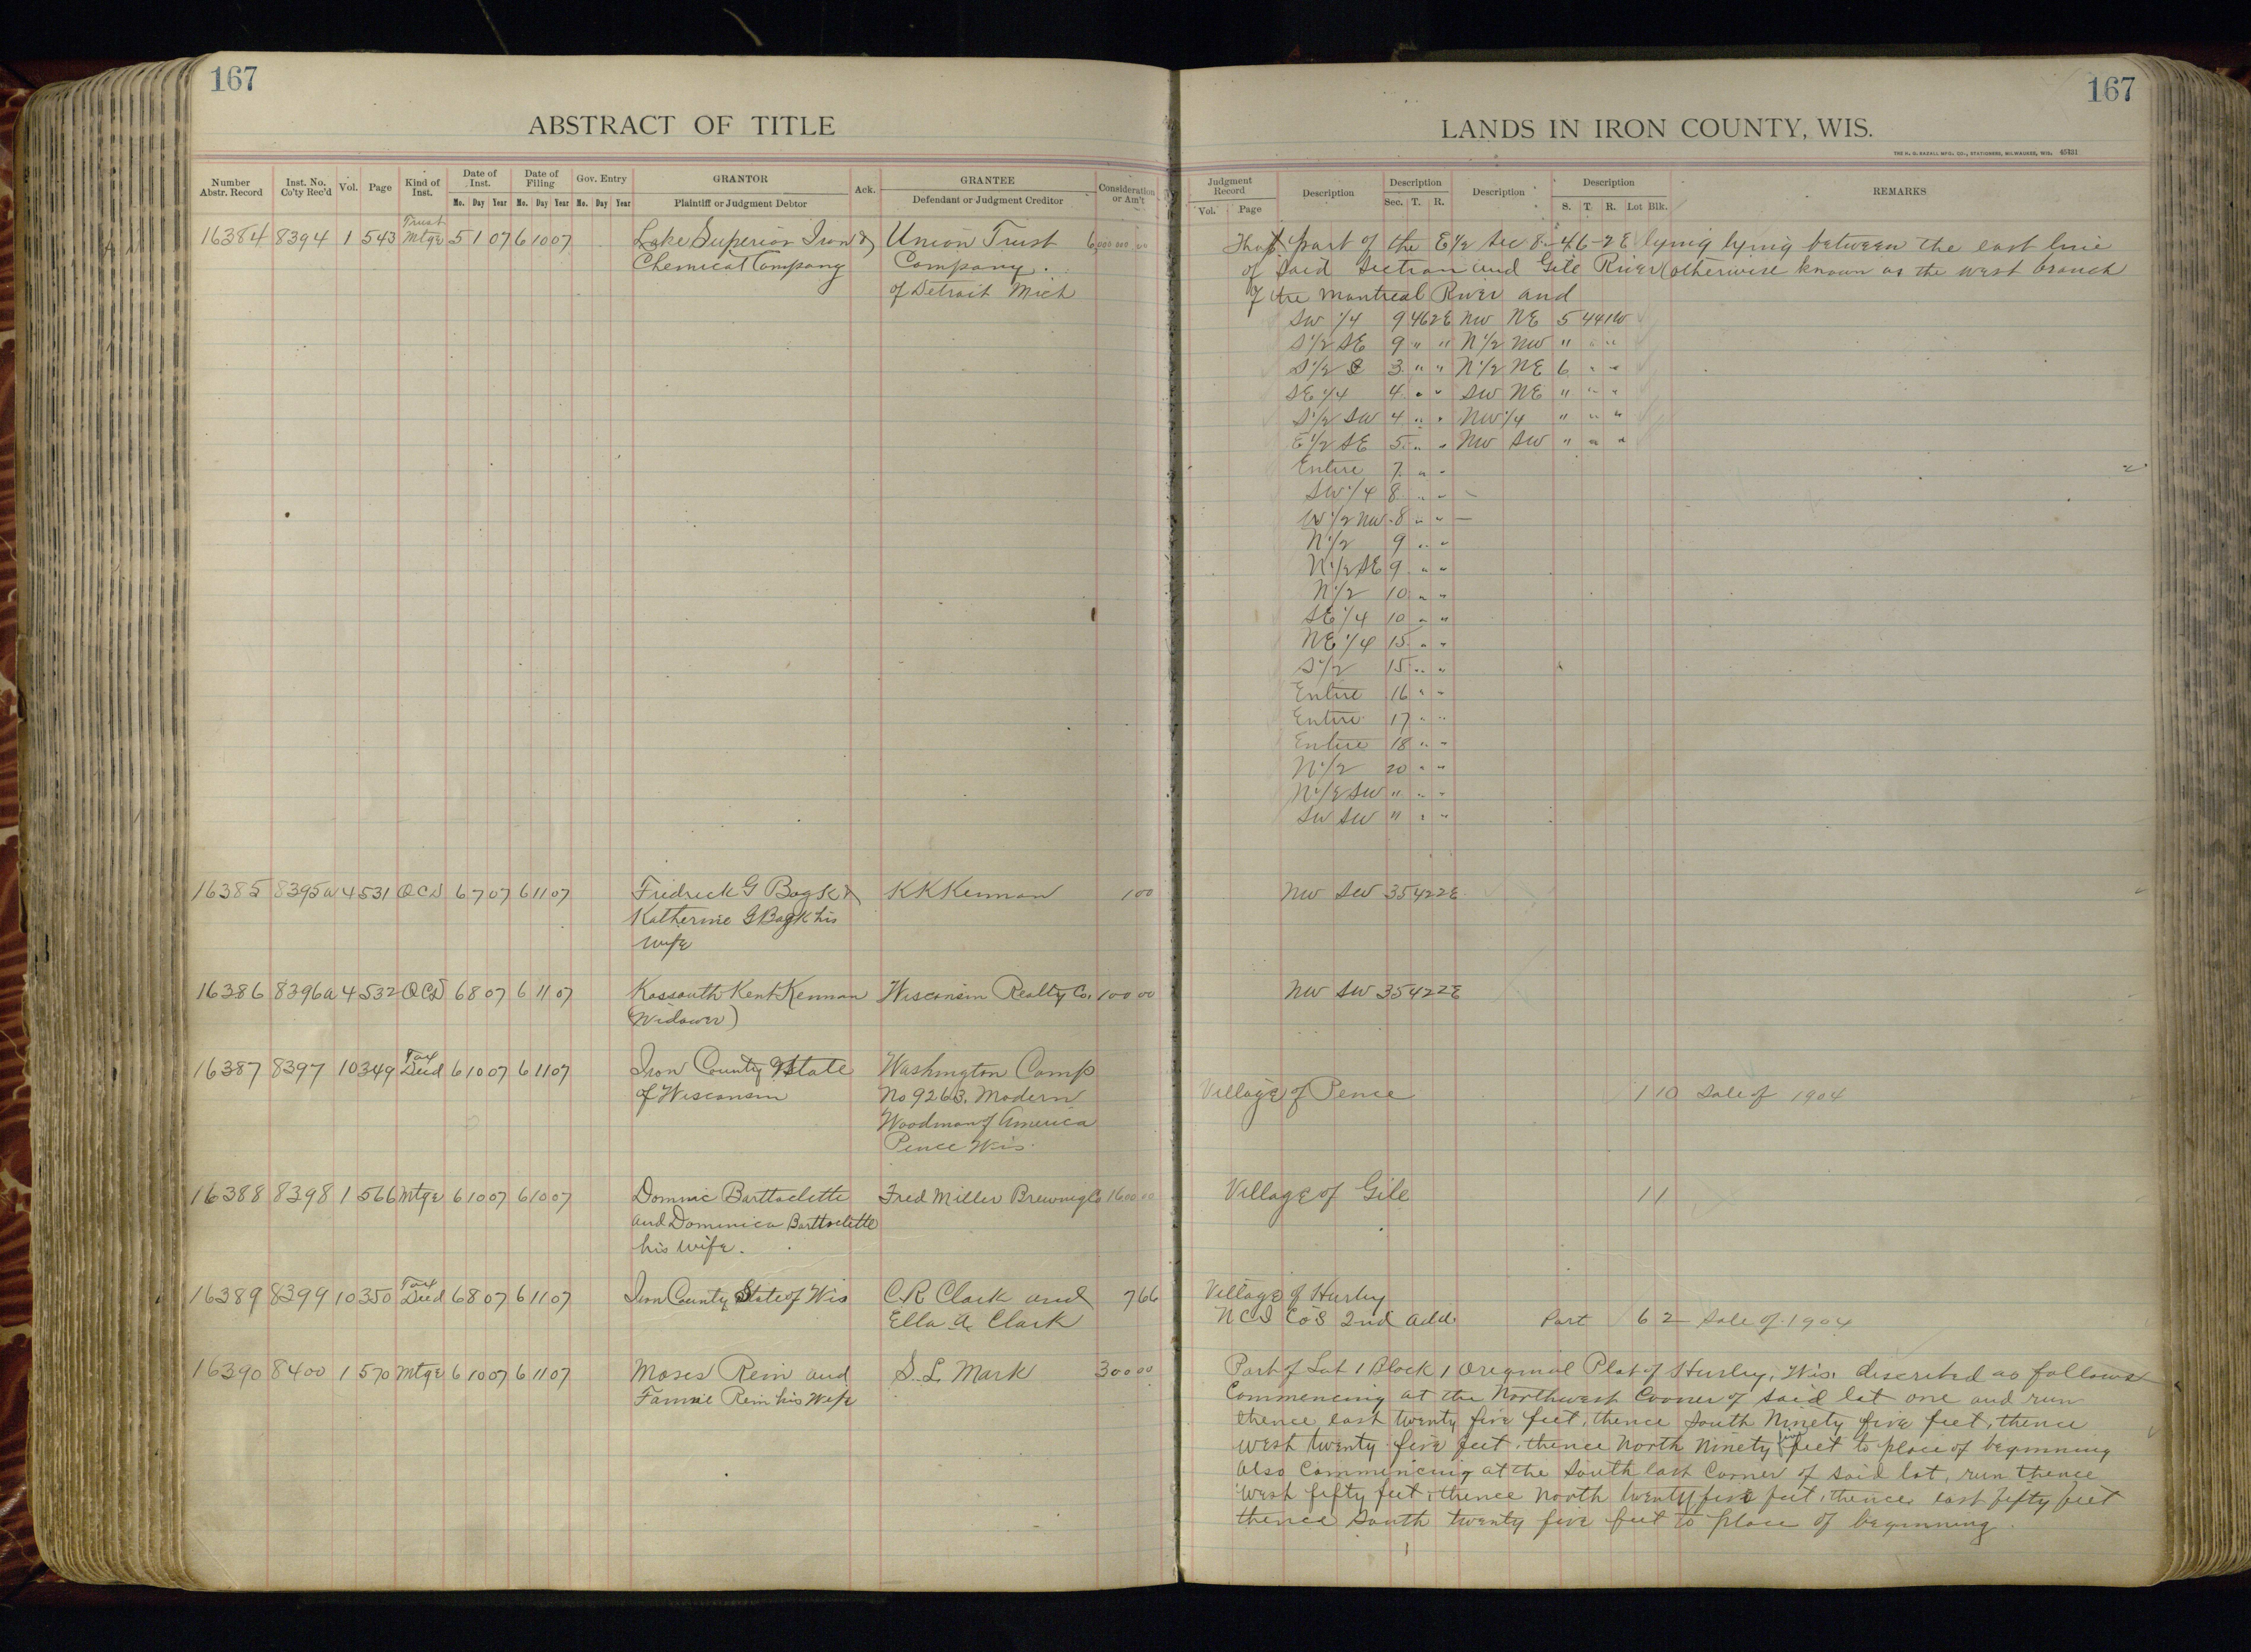 167
ABSTRACT OF TITLE
Number Abstr. Record Inst. No. Co'ty Rec'd Vol. Page Kind of Inst. Date of Inst. Date of Filing Gov. Entry GRANTOR Ack. GRANTEE Consideration or Am't
Mo. Day Year Mo. Day Year Mo. Day Year Plaintiff or Judgment Debtor Defendant or Judgment Creditor
Trust
16384 8394 1 543 Mtge 5 1 07 6 10 07 Lake Superior Iron & Union Trust
Chemical Company Company.
of Detroit Mich
16385 8395a 4 531 QCD 6 7 07 6 11 07 Fridrick G & K K Kennan 1 00
Katherine G his
wife
16386 8396a 4 532 QCD 6 8 07 6 11 07 Kossouth Kent Kennan Wisconsin Realty Co. 100 00
(Widower)
Tax
16387 8397 10 349 Deed 6 10 07 6 11 07 Iron County State Washington Camp
of Wisconsin No 9263. Modern
Woodman of America
Pence Wis.
16388 8398 1 566 Mtge 6 10 07 6 10 07 Dominic Barttoclette Fred Miller Brewing Co 1600 00
and Dominica Barttoclette
his wife.
Tax
16389 8399 10 350 Deed 6 8 07 6 11 07 Iron County State of Wis C. R Clark and 7 66
Ella A. Clark
16390 8400 1 570 Mtge 6 10 07 6 11 07 Moses Rein and S. L. Mark 300 00
Fannie Rein his Wife
167
LANDS IN IRON COUNTY, WIS.
THE H. G. RAZALL MFG. CO., STATIONERS, MILWAUKEE, WIS. 45131
Judgment Record Description Description Description Description REMARKS
Vol. Page Sec. T. R. S. T. R. Lot Blk.
That part of the E 1/2 Sec 8-46-2E lying lying between the east line
of said Section and Gile River (otherwise known as the west branch
of the Montreal River and
SW 1/4 9 46 2E NW NE 5 44 1W
S 1/2 SE 9 " " N 1/2 NW " " "
S 1/2 S 3 " " N 1/2 NE 6 " "
SE 1/4 4 " " SW NE " " "
S 1/2 SW 4 " " NW 1/4 " " "
E 1/2 SE 5 " " NW SW " " "
Entire 7 " "
SW 1/4 8 " "
W 1/2 NW 8 " "
N 1/2 9 " "
N 1/2 SE 9 " "
N 1/2 10 " "
SE 1/4 10 " "
NE 1/4 15 " "
S 1/2 15 " "
Entire 16 " "
Entire 17 " "
Entire 18 " "
N 1/2 20 " "
N 1/2 SW " " "
SW SW " " "
NW SW 35 42 2E
NW SW 35 42 2E
Village of Pence 1 10 Sale of 1904
Village of Gile 1 1
Village of Hurley
NCI Co's 2nd Add. Part 6 2 Sale of 1904
Part of Lot 1 Block 1 Original Plat of Hurley, Wis. described as follows
Commencing at the Northwest Corner of said lot one and run
thence east twenty five feet, thence South Ninety five feet, thence
West twenty five feet, thence North Ninety five feet to place of beginning
Also Commencing at the South east Corner of said lot, run thence
West fifty feet, thence North twenty five feet, thence east fifty feet
thence South twenty five feet to place of beginning.